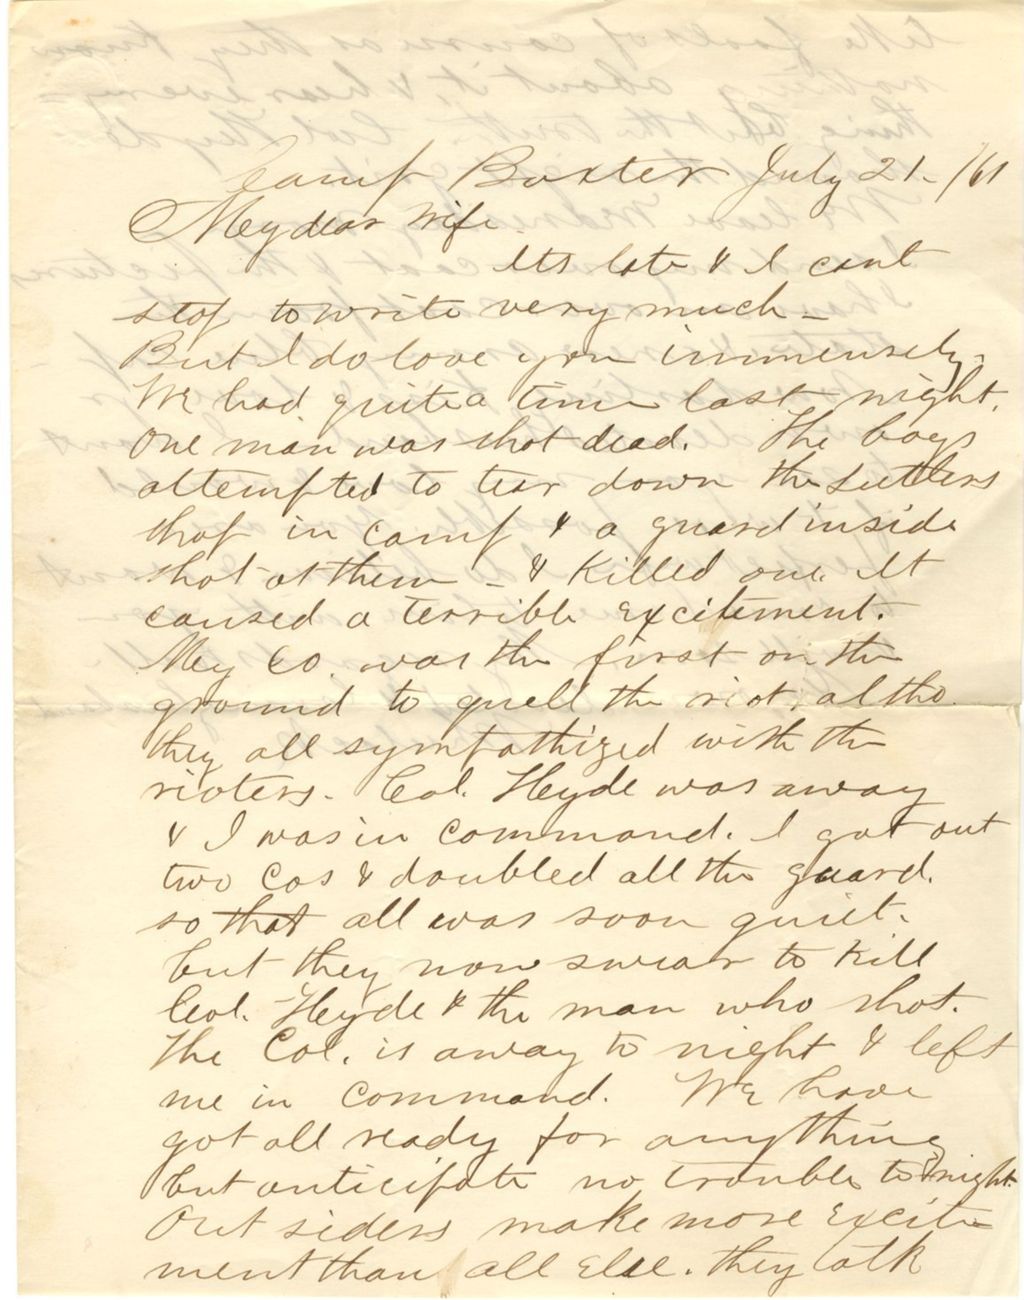 Camp Baxter July 21-/61
My dear Wife
Its late & I cant
stop to write very much -
But I do love you immensely.
We had quite a time last night.
One man was shot dead. The boys
attempted to tear down the Sutlers
shop in camp & a guard inside
shot at them - & killed one. It
caused a terrible excitement.
My Co. was the first on the
ground to quell the riot, altho
they all sympathized with the
rioters. Col. Hyde was away
& I was in command. I got out
two Cos & doubled all the guard.
so that all was soon quiet.
but they now swear to kill
Col. Hyde & the man who shot.
The Col. is away to night & left
me in command. We have
got all ready for anything
but anticipate no trouble to night.
Out siders make more excite
ment than all else. they talk